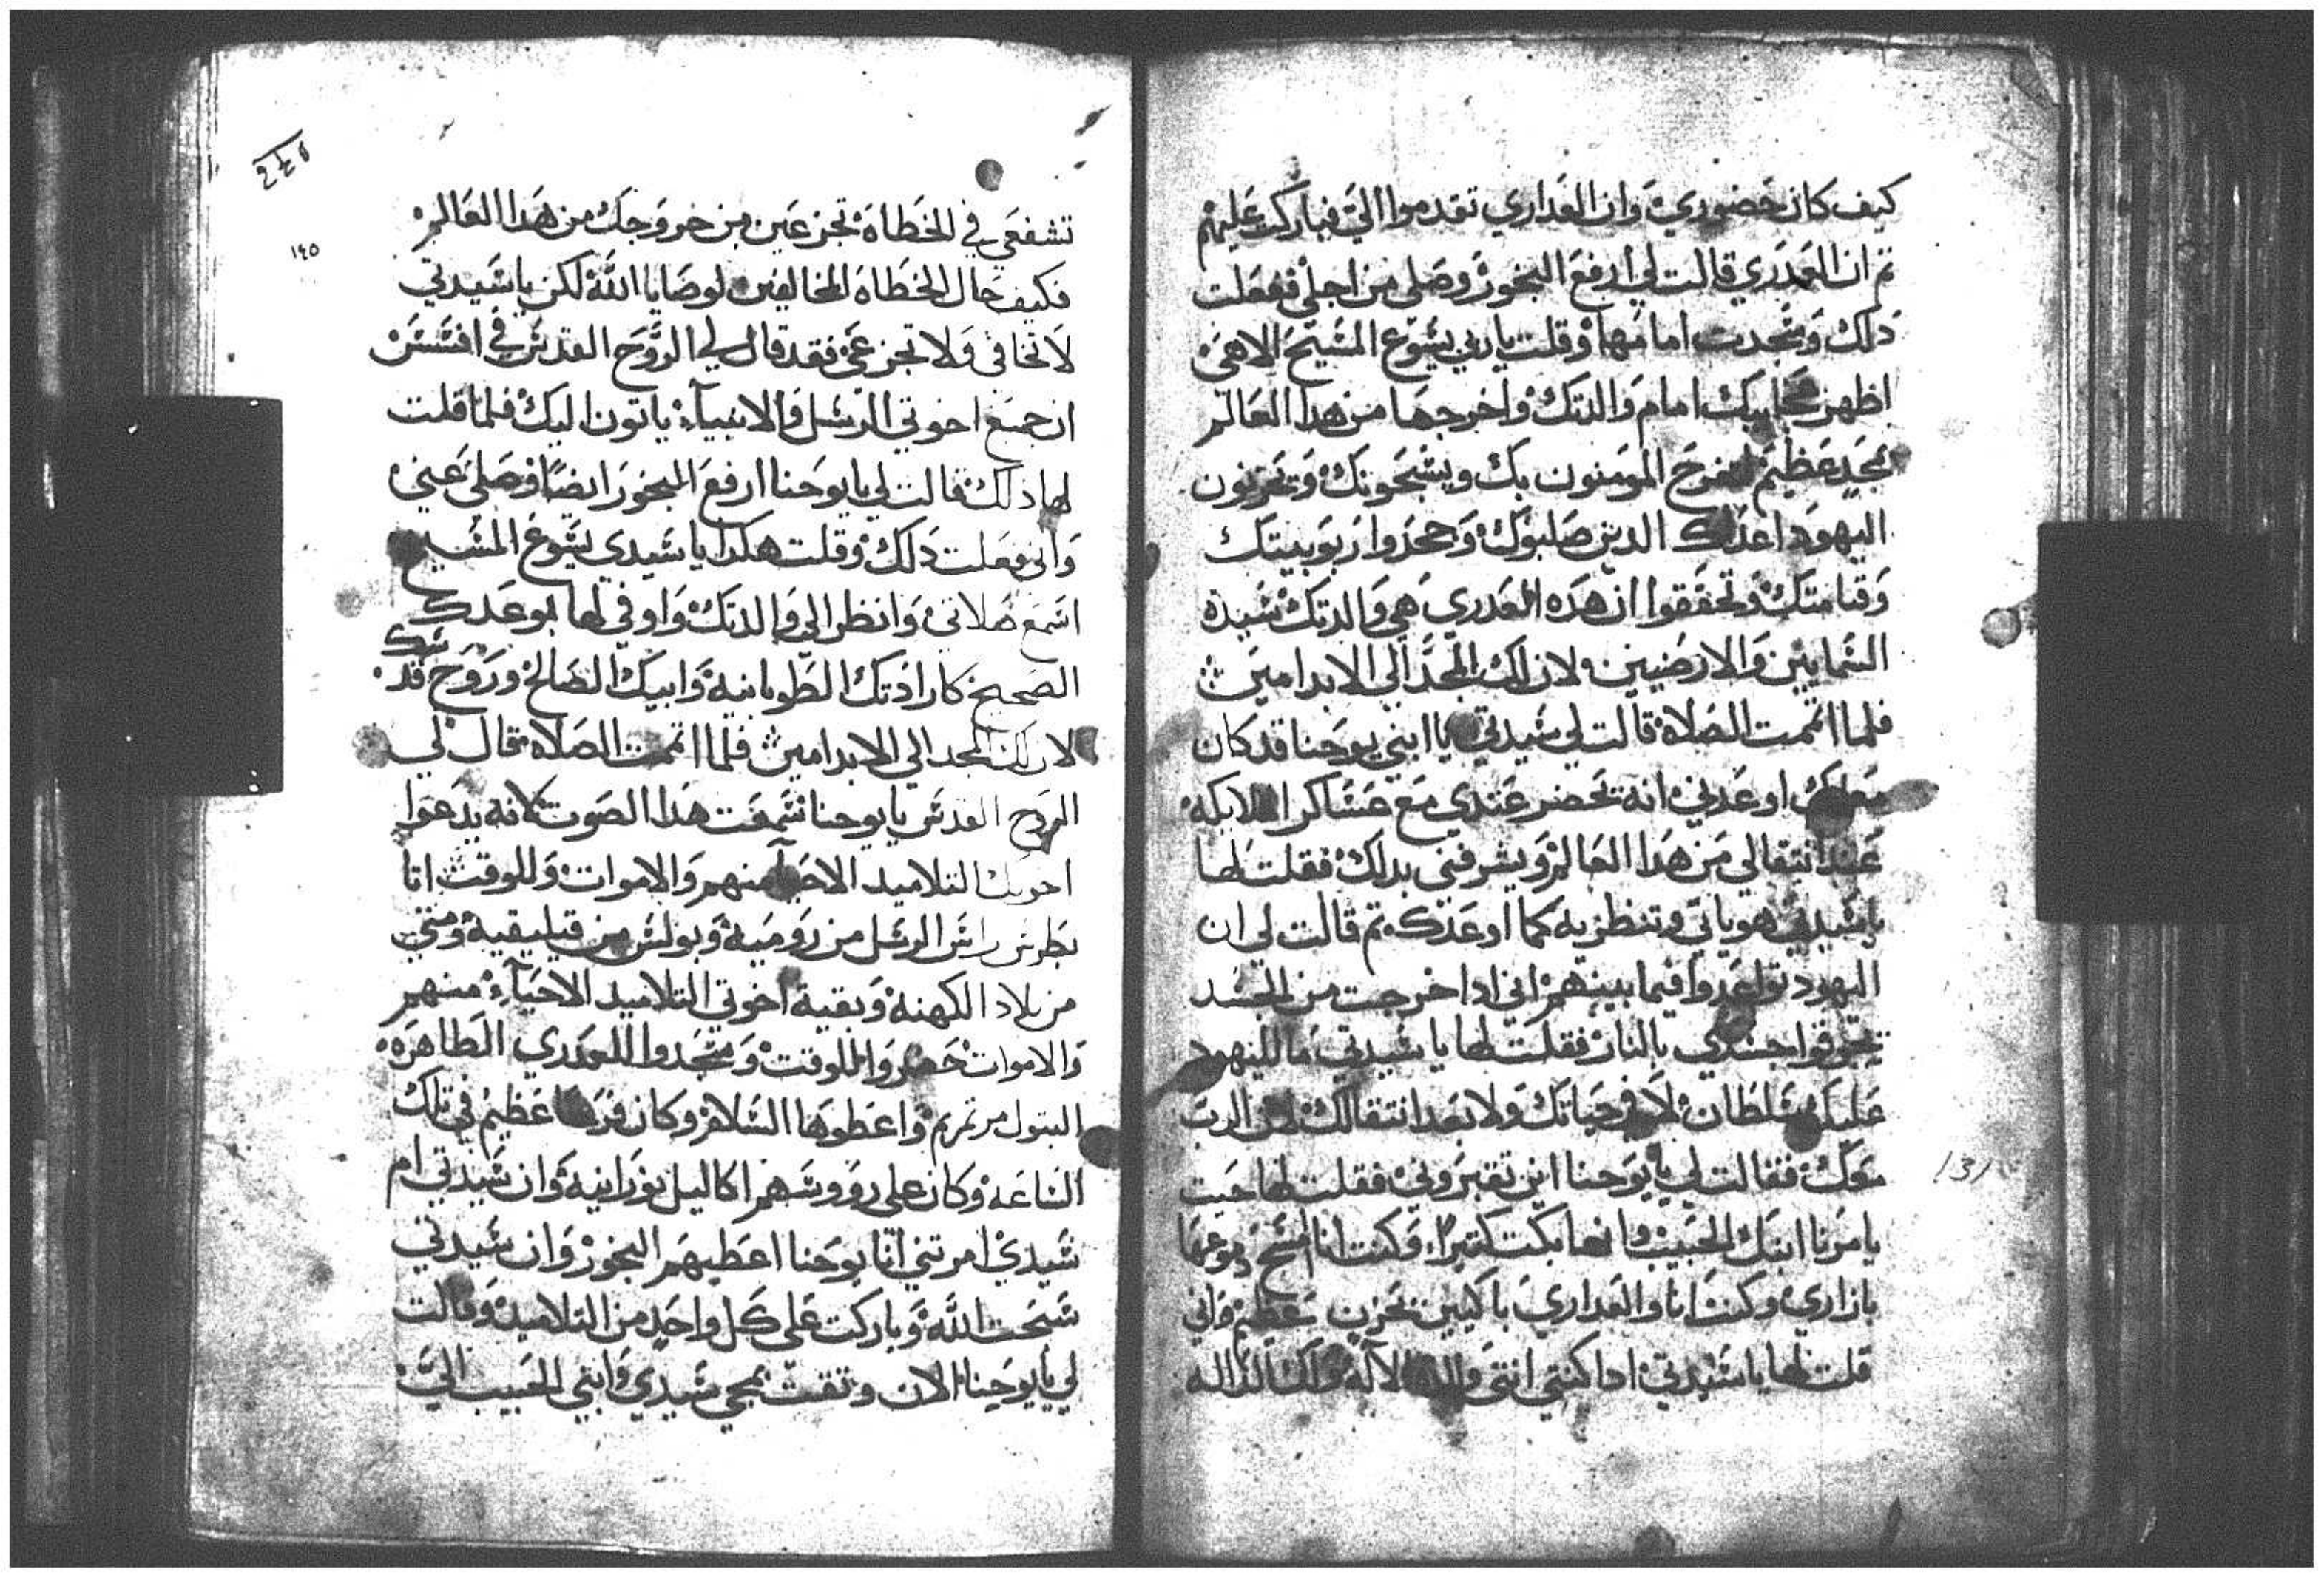 كيف كان حضوري وان العداري تقدموا الي فباركت عليهم
تم ان العدري قالت لي ارفع البخور وصلي من اجلي ففعلت
دلك وسجدت امامها وقلت ياربي يسوع المسيح الاهي
اظهر عجايبك امام والدتك واخرجها من هدا العالم
بمجد عظيم ليفرح المومنون بك ويسبحونك وتحزنون
اليهود اعداك الدين صلبوك وجحدوا ربوبيتك
وقيامتك وتحققوا ان هده العدري هي والدتك سيدة
السمايين والارضيين لان لك المجد الي الابد امين
فلما اتممت الصلاة قالت لي سيدتي يا ابني يوحنا قد كان
اوعدني انه يحضر عندي مع عساكر الملايكه
عند انتقالي من هدا العالم ويشرفني بدلك فقلت لها
يا سيدتي هو ياتي وتنظريه كما اوعدك تم قالت لي ان
اليهود تواعدوا فيما بينهم اني ادا خرجت من الجسد
يحرقوا جسدي بالنار فقلت لها يا سيدتي ما لليهود
عليك سلطان لا في حياتك ولا بعد انتقالك لان الرب
معك فقالت لي يا يوحنا اين تقبروني فقلت لها حيت
يامرنا ابنك الحبيب وانها بكت كتيرا وكنت انا امسح دموعها
بازاري وكنت انا والعداري باكيين بحزن عظيم واني
قلت لها يا سيدتي ادا كنتي انتي والدة الاله
٢٤٥
١٤٥
تشفعي في الخطاه تجزعين من خروجك من هدا العالم
فكيف حال الخطاه المخالفين لوصايا الله لكن يا سيدتي
لا تخافي ولا تجزعي فقد قال لي الروح القدس في افسس
ان جميع اخوتي الرسل والانبياء ياتون اليك فلما قلت
لها ذلك قالت لي يا يوحنا ارفع البخور ايضا وصلي عني
واني فعلت دلك وقلت هكدا يا سيدي يسوع المسيح
اسمع صلاتي وانظر الي والدتك واوفي لها بوعدك
الصحيح كارادتك الطوبانية وابيك الصالح وروح قدسك
لان لك المجد الي الابد امين فلما اتممت الصلاه قال لي
الروح القدس يا يوحنا سمعت هدا الصوت لانه يدعوا
اخوتك التلاميد الاحيا منهم والاموات وللوقت اتا
بطرس راس الرسل من رومية وبولس من قيليقية ومتي
من بلاد الكهنة وبقية اخوتي التلاميد الاحياء منهم
والاموات حضروا للوقت وسجدوا للعدري الطاهرة
البتول مرتمريم واعطوها السلام وكان فرحا عظيم في تلك
الساعة وكان علي رووسهم اكاليل نورانية وان سيدتي ام
سيدي امرتني انا يوحنا اعطيهم البخور وان سيدتي
سبحت الله وباركت علي كل واحد من التلاميد وقالت
لي يا يوحنا الان وتقت بمجي سيدي وابني الحبيب الي
131